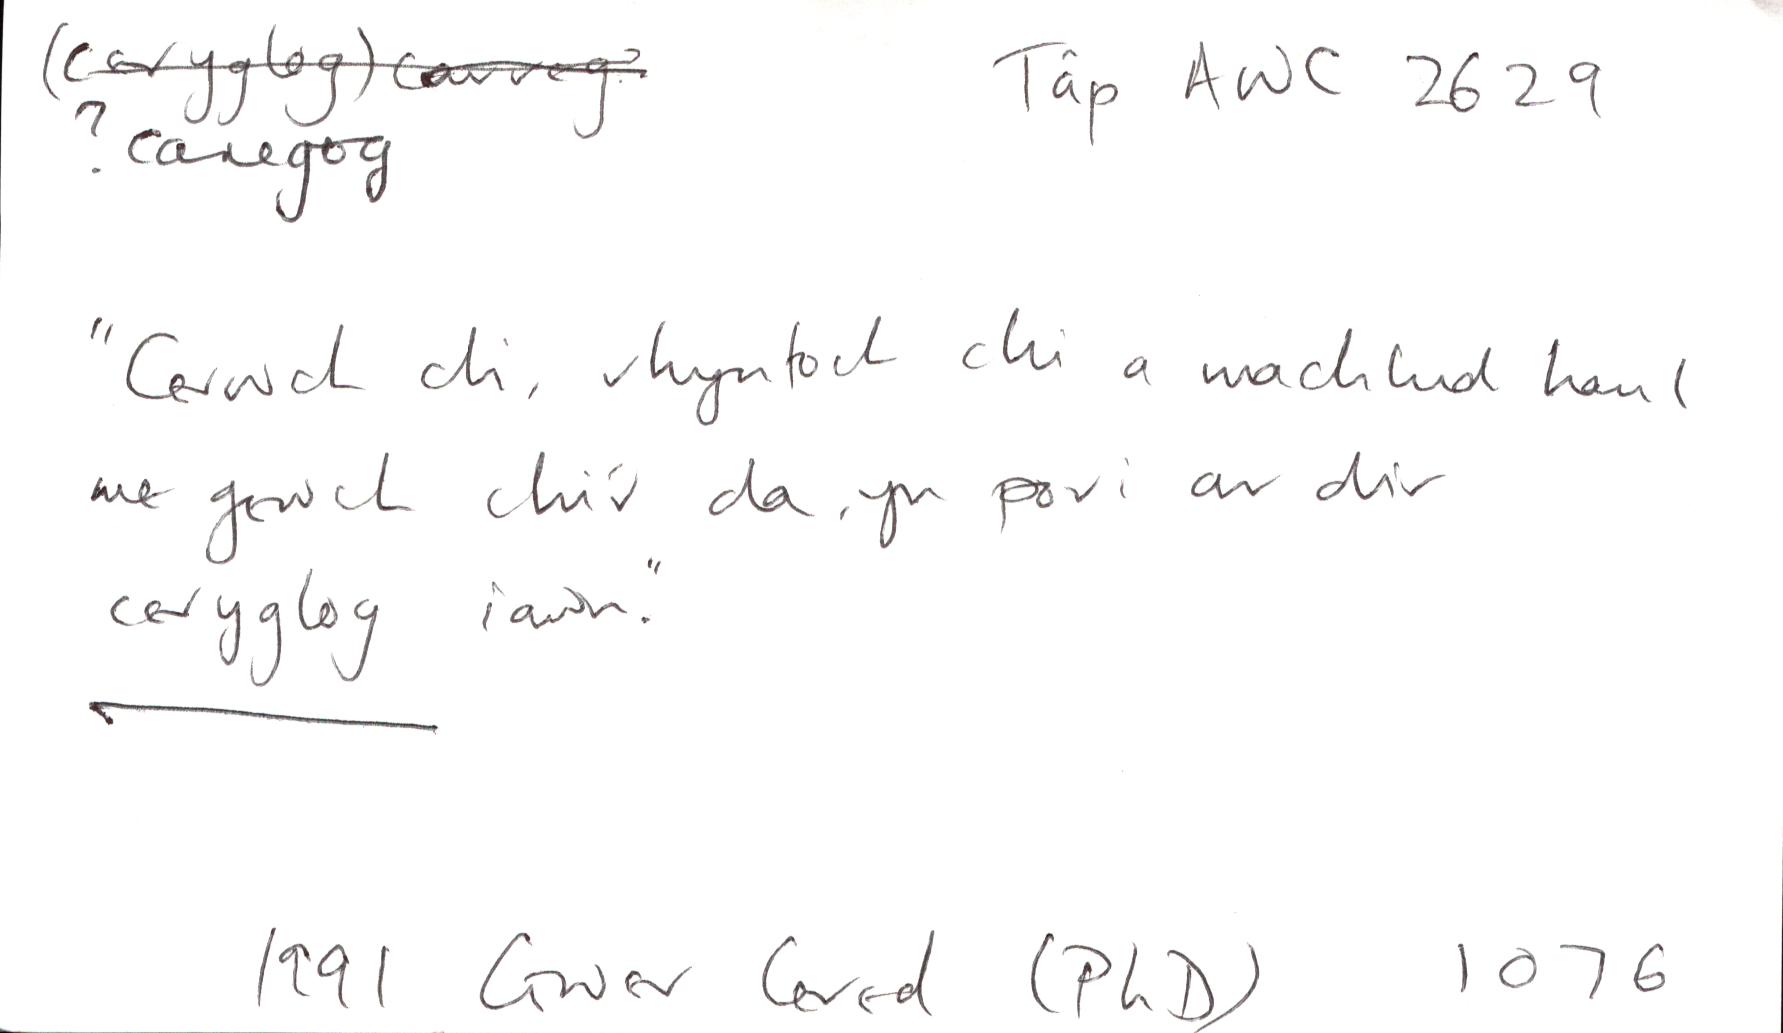 (caryglog) carreg? Tâp AWC 2629
? caregog
"Cerwch chi, rhyntoch chi a machlud haul
me gewch chi'r da, yn pori ar dir
caryglog iawn."
1991 Gwer Cered (PhD) 1076